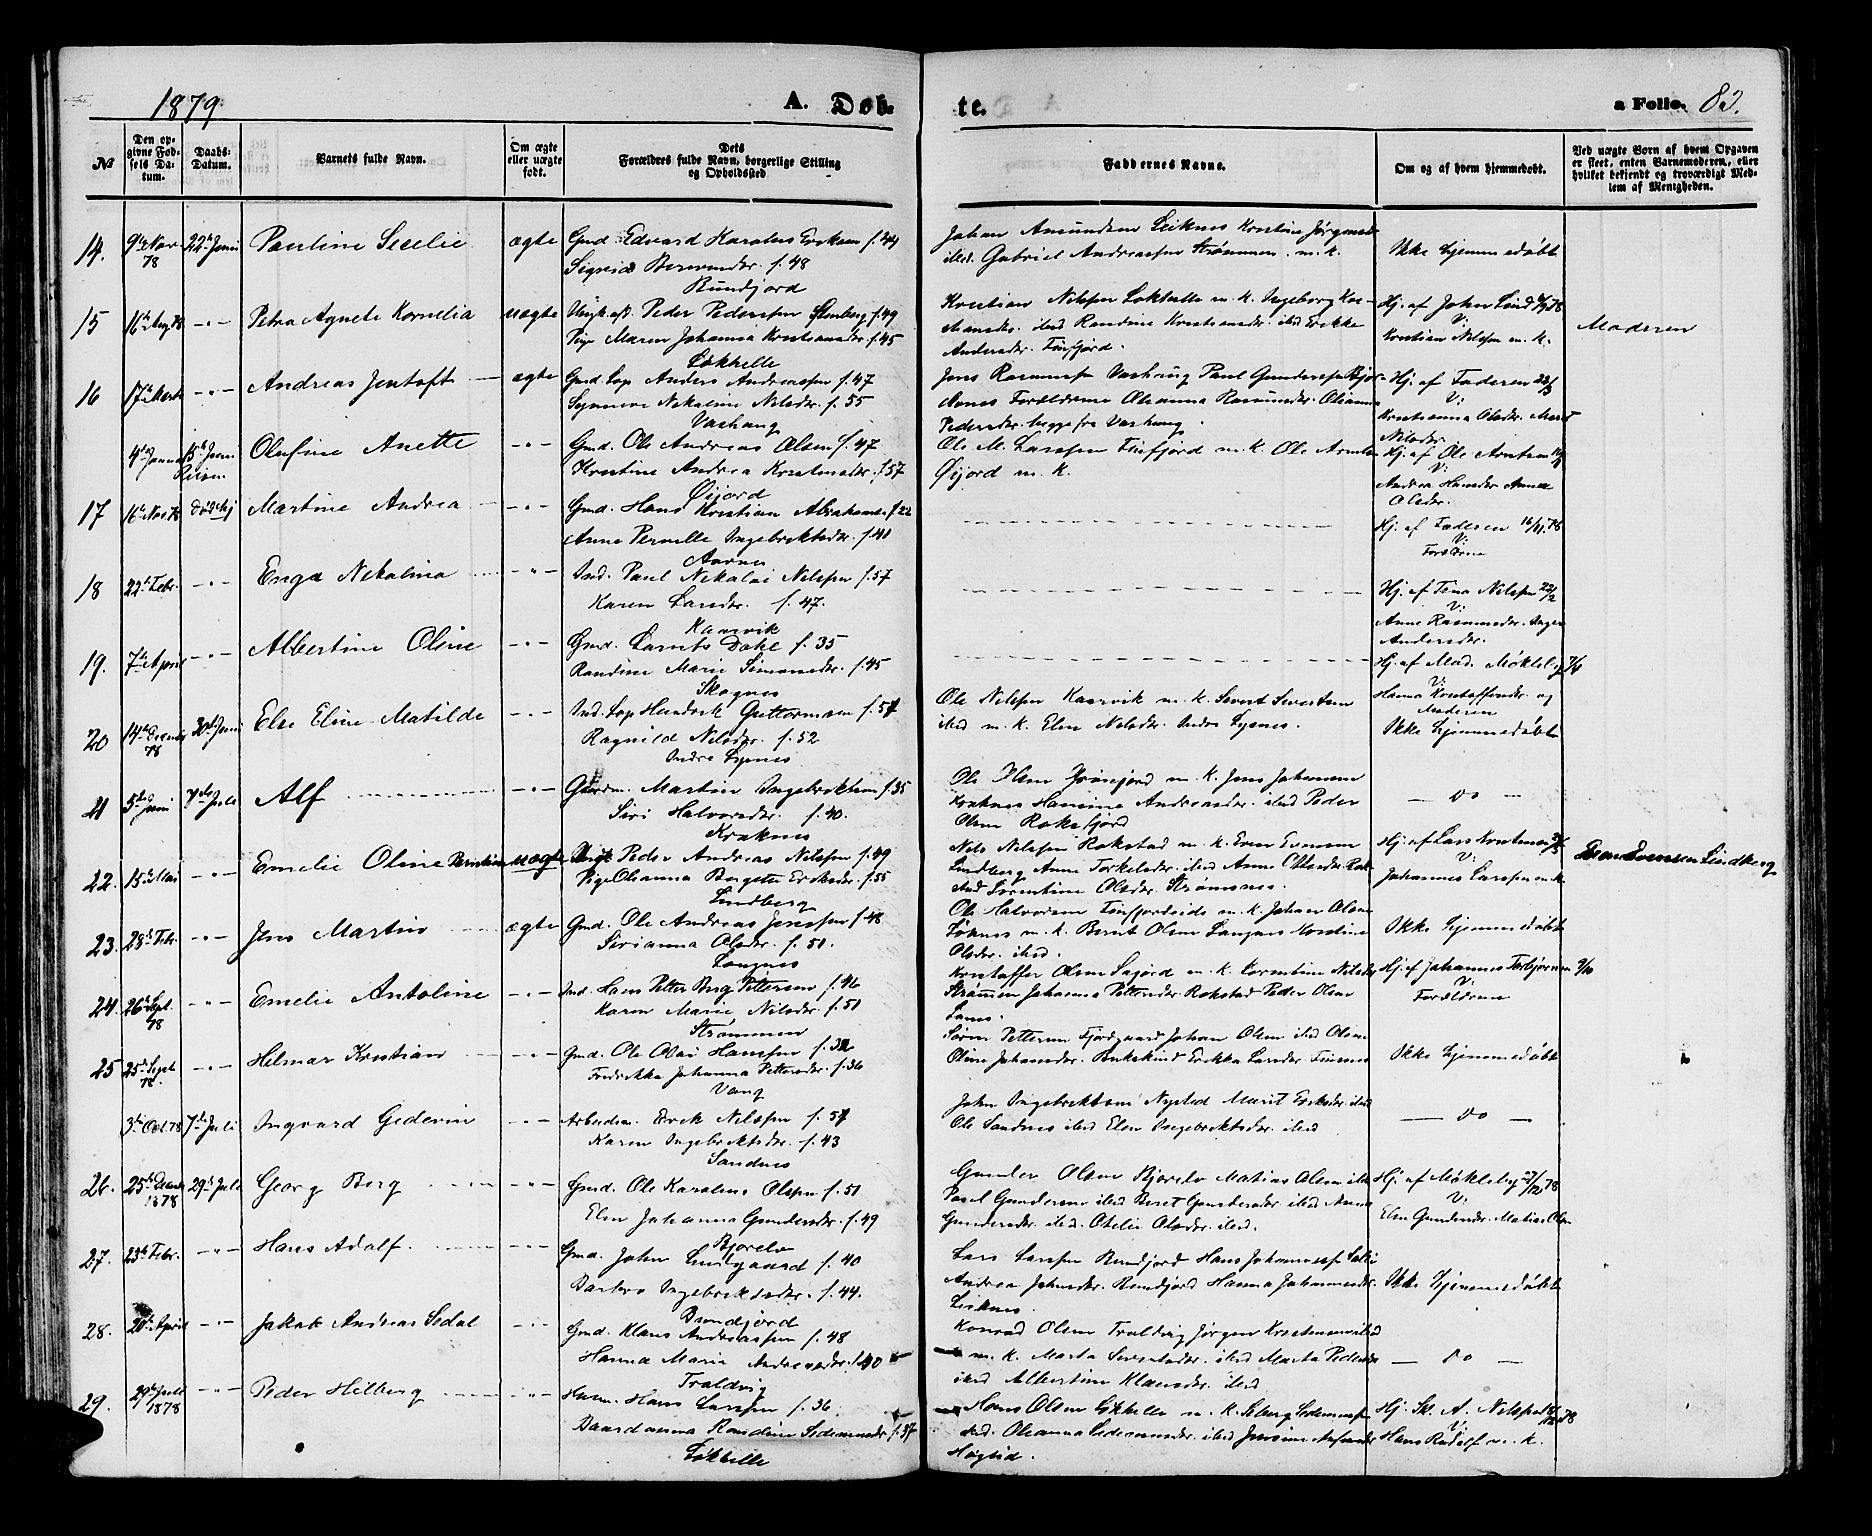 1879
A. Døb-
te.
a Folio. 82.
№
Den op-
givne Fød-
sels Da-
tum.
Daabs-
Datum.
Barnets fulde Navn.
Om ægte
eller uægte
født.
Dets
Forældres fulde Navn, borgerlige Stilling
og Opholdssted
Faddernes Navne.
Om og af hvem hjemmedøbt.
Ved uægte Børn af hvem Opgaven
er skeet, enten Barnemoderen, eller
hvilket bekjendt og troværdigt Med-
lem af Menigheden.
14. 9de Nov 78 22de Juni Pauline Secelie ægte Gmd. Edvard Karolus Eriksen f. 44
Sigrid f. 48
Bundjord
Johan Amundsen Leiknes Kristine
ibid. Gabriel Andreassen Strømmen m. k.
Ikke hjemmedøbt
15 16de Aug 78 -"- Petra Agnete Kornelia uægte Ungk. Peder Pederssen f. 49
Pige Maren Johanna Kristiansdr. f. 45
Løkhelle
Kristian Nilssen Løkhelle m. k. Ingeborg Kri-
stiansdr. ibid Randine Kristiansdr. ibid Erikke
Andersdr. Finfjord.
Hj. af John Lind
V:
Kristian Nilssen m. k.
Moderen
16 17de Marts -"- Andreas Jentoft ægte Gmd. Søp Anders Andreassen f. 47
Synneve Nekoline Nilsdr. f. 55
Vashaug
Jens Rasmuss Vashaug Paul Gunderss
Forældrene Olianna Rasmusdr. Olianna
Pedersdr. begge fra Vashaug.
Hj. af Faderen 22/3
V:
Kristianna Olsdr. Marit
Nilsdr.
4de Januar 15de Juni Olufine Anette -"- Gmd. Ole Andreas Olsen f. 47
Kristine Andrea Kristensdr. f. 57
Øijord
Ole M. Larssen Finfjord m. k. Ole Arntsen
Øijord m. k.
Hj. af Ole Arntsen
V:
Andrea Hansdr. Anna
Olsdr.
17 16de Nov 78 død hj Martine Andrea -"- Gmd. Hans Kristian Abrahams. f. 22
Anne Pernelle Ingebrektsdr. f. 40
Hj. af Faderen 16/11. 78
V:
Forældrene
18 22de Febr. -"- Enga Nekolina -"- Ind. Paul Nekolai Nilssen f. 57
Karen Larsdr. f. 47.
Kaarvik
Hj. af Tina Nilssen 22/2
V:
Anne Rasmusdr. Inger
Andersdr.
19. 7de April -"- Albertine Oline -"- Gmd. Lornts Dahl f. 35
Randine Marie Simonsdr. f. 45
Skognes
Hj. af Mad. Møkleby 7/4
V:
Hanna Kristoffersdr. og
Moderen
20 14de Decemb 78 30te Juni Else Eline Matilde -"- Ind. Søp Hendrik Guttormsen f. 57
Ragnild Nilsdr. f. 52
Indre Lysnes
Ole Nilssen Kaarvik m. k. Sivert Sivertsen
ibid m. k. Elen Nilsdr. Indre Lysnes.
Ikke hjemmedøbt
21 5te Juni 7de Juli Alf -"- Gaardm. Martin Ingebrektsen f. 35
Siri Halvorsdr. f. 40.
Kraknes
Ole Olsen m. k. Jens Johannesen
Kraknes Hansine Andreasdr. ibid Peder
Olsen Rakefjord
— Do —
22. 15de Mai -"- Emelie Oline Berntine uægte Ungk. Peder Andreas Nilssen f. 49
Pige Olianna Birgete Eriksdr. f. 55
Lindberg
Nils Nilssen Rokstad m. k. Even Evensen
Lindberg Anne Torkelsdr. ibid Anne
Lorentine Olsdr. Strømsnes.
Hj. af Lars Kristensen
V:
Johannes Larssen m. k.
Even Evensen Lindberg
23. 28de Febr. -"- Jens Martin ægte Gmd. Ole Andreas Jenssen f. 48
Sirianna Olsdr. f. 51.
Langnes
Ole Halvorsen Finfjordeide m. k. Johan Olsen
Løknes m. k. Bernt Olsen Langnes Kristine
Olsdr. ibid.
Ikke hjemmedøbt
24. 26de Sept. 78 -"- Emelie Antoline -"- Ind. Hans Petter Berg Pettersen f. 46
Karen Marie Nilsdr. f. 51
Strømmen
Kristoffer Olsen m. k. Lorentine Nilsdr
Strømmen Johanna Pettersdr. Rokstad Peder Olsen
Hj. af Johannes Torbjørnsen 9/10
V:
Forældrene
25 25de Sept 78. -"- Helmar Kristian -"- Gmd. Ole Olai Hanssen f. 32
Fredrikka Johanna Pettersdr. f. 36
Vang
Søren Pettersen Fjordgaard Johan Olsen ibid
Oline Johansdr. Bukskind Erikka Larsdr. Finnes
Ikke hjemmedøbt
3de Oct. 78 7de Juli Ingvard Gederin -"- Arbeidsm. Erik Nilssen f. 51
Karen Ingebrektsdr. f. 43
Sandnes
John Ingebrektsen Nysted Marit Eriksdr. ibid
Ole Sandnes ibid Elen Ingebrektsdr. ibid
— Do —
26. 25de Decemb 1878 29de Juli Georg Berg -"- Gmd. Ole Karolius Olssen f. 51
Elen Johanna Gundersdr. f. 49
Bjorelv
Gunder Olsen Bjorelv Matias Olsen ibid
Paul Gundersen ibid Beret Gundersdr. ibid Anna
Gundersdr. ibid. Otelie Olsdr. ibid.
Hj. af Møkleby 27/12 78
V:
Elen Gundersdr. Matias Olsen
27. 23de Febr. -"- Hans Adolf. -"- Gmd. John f. 40
Barbro Ingebrektsdr. f. 44.
Bundjord
Lars Larssen Bundjord Hans Johanness
Andrea Johnsdr. Bundjord Hanna Johannesdr.
Leiknes.
Ikke hjemmedøbt
28. 20de April -"- Jakob Andreas Sedal -"- Gmd. Klaus Andreassen f. 48
Hanna Maria Andreasdr. f. 40
Troldvig
Konrad Olsen Troldvig Jørgen Kristensen ibid
m. k. Marta Sivertsdr. ibid Marta Pedersdr
ibid Albertine Klausdr. ibid
— Do —
29. 29de Juli 1878 -"- Peder Hilberg -"- Husm. Hans Larssen f. 36.
Randine f. 37
Løkhelle
Hans Olsen Løkhelle m. k.
ibid. Olianna ibid
Høgtid.
Hj. Sk. A. Nilssen 78
V:
Hans Rudolf m. k.